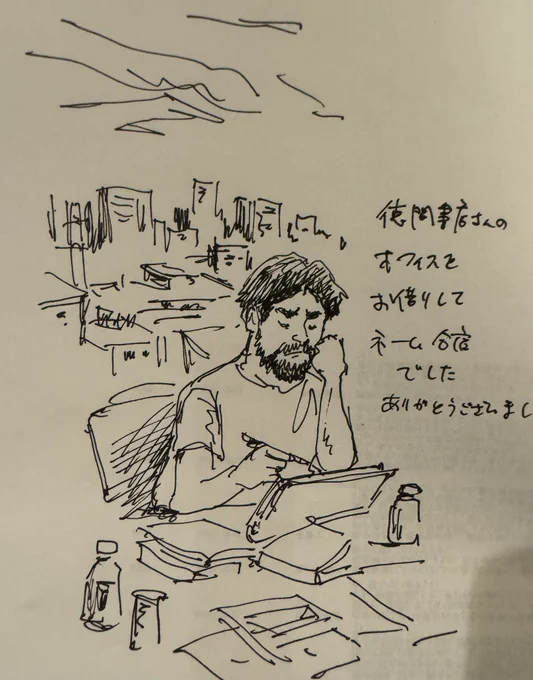 徳間書店さんの
オフィスを
お借りして
ネーム合宿
でした
ありがとうございまし